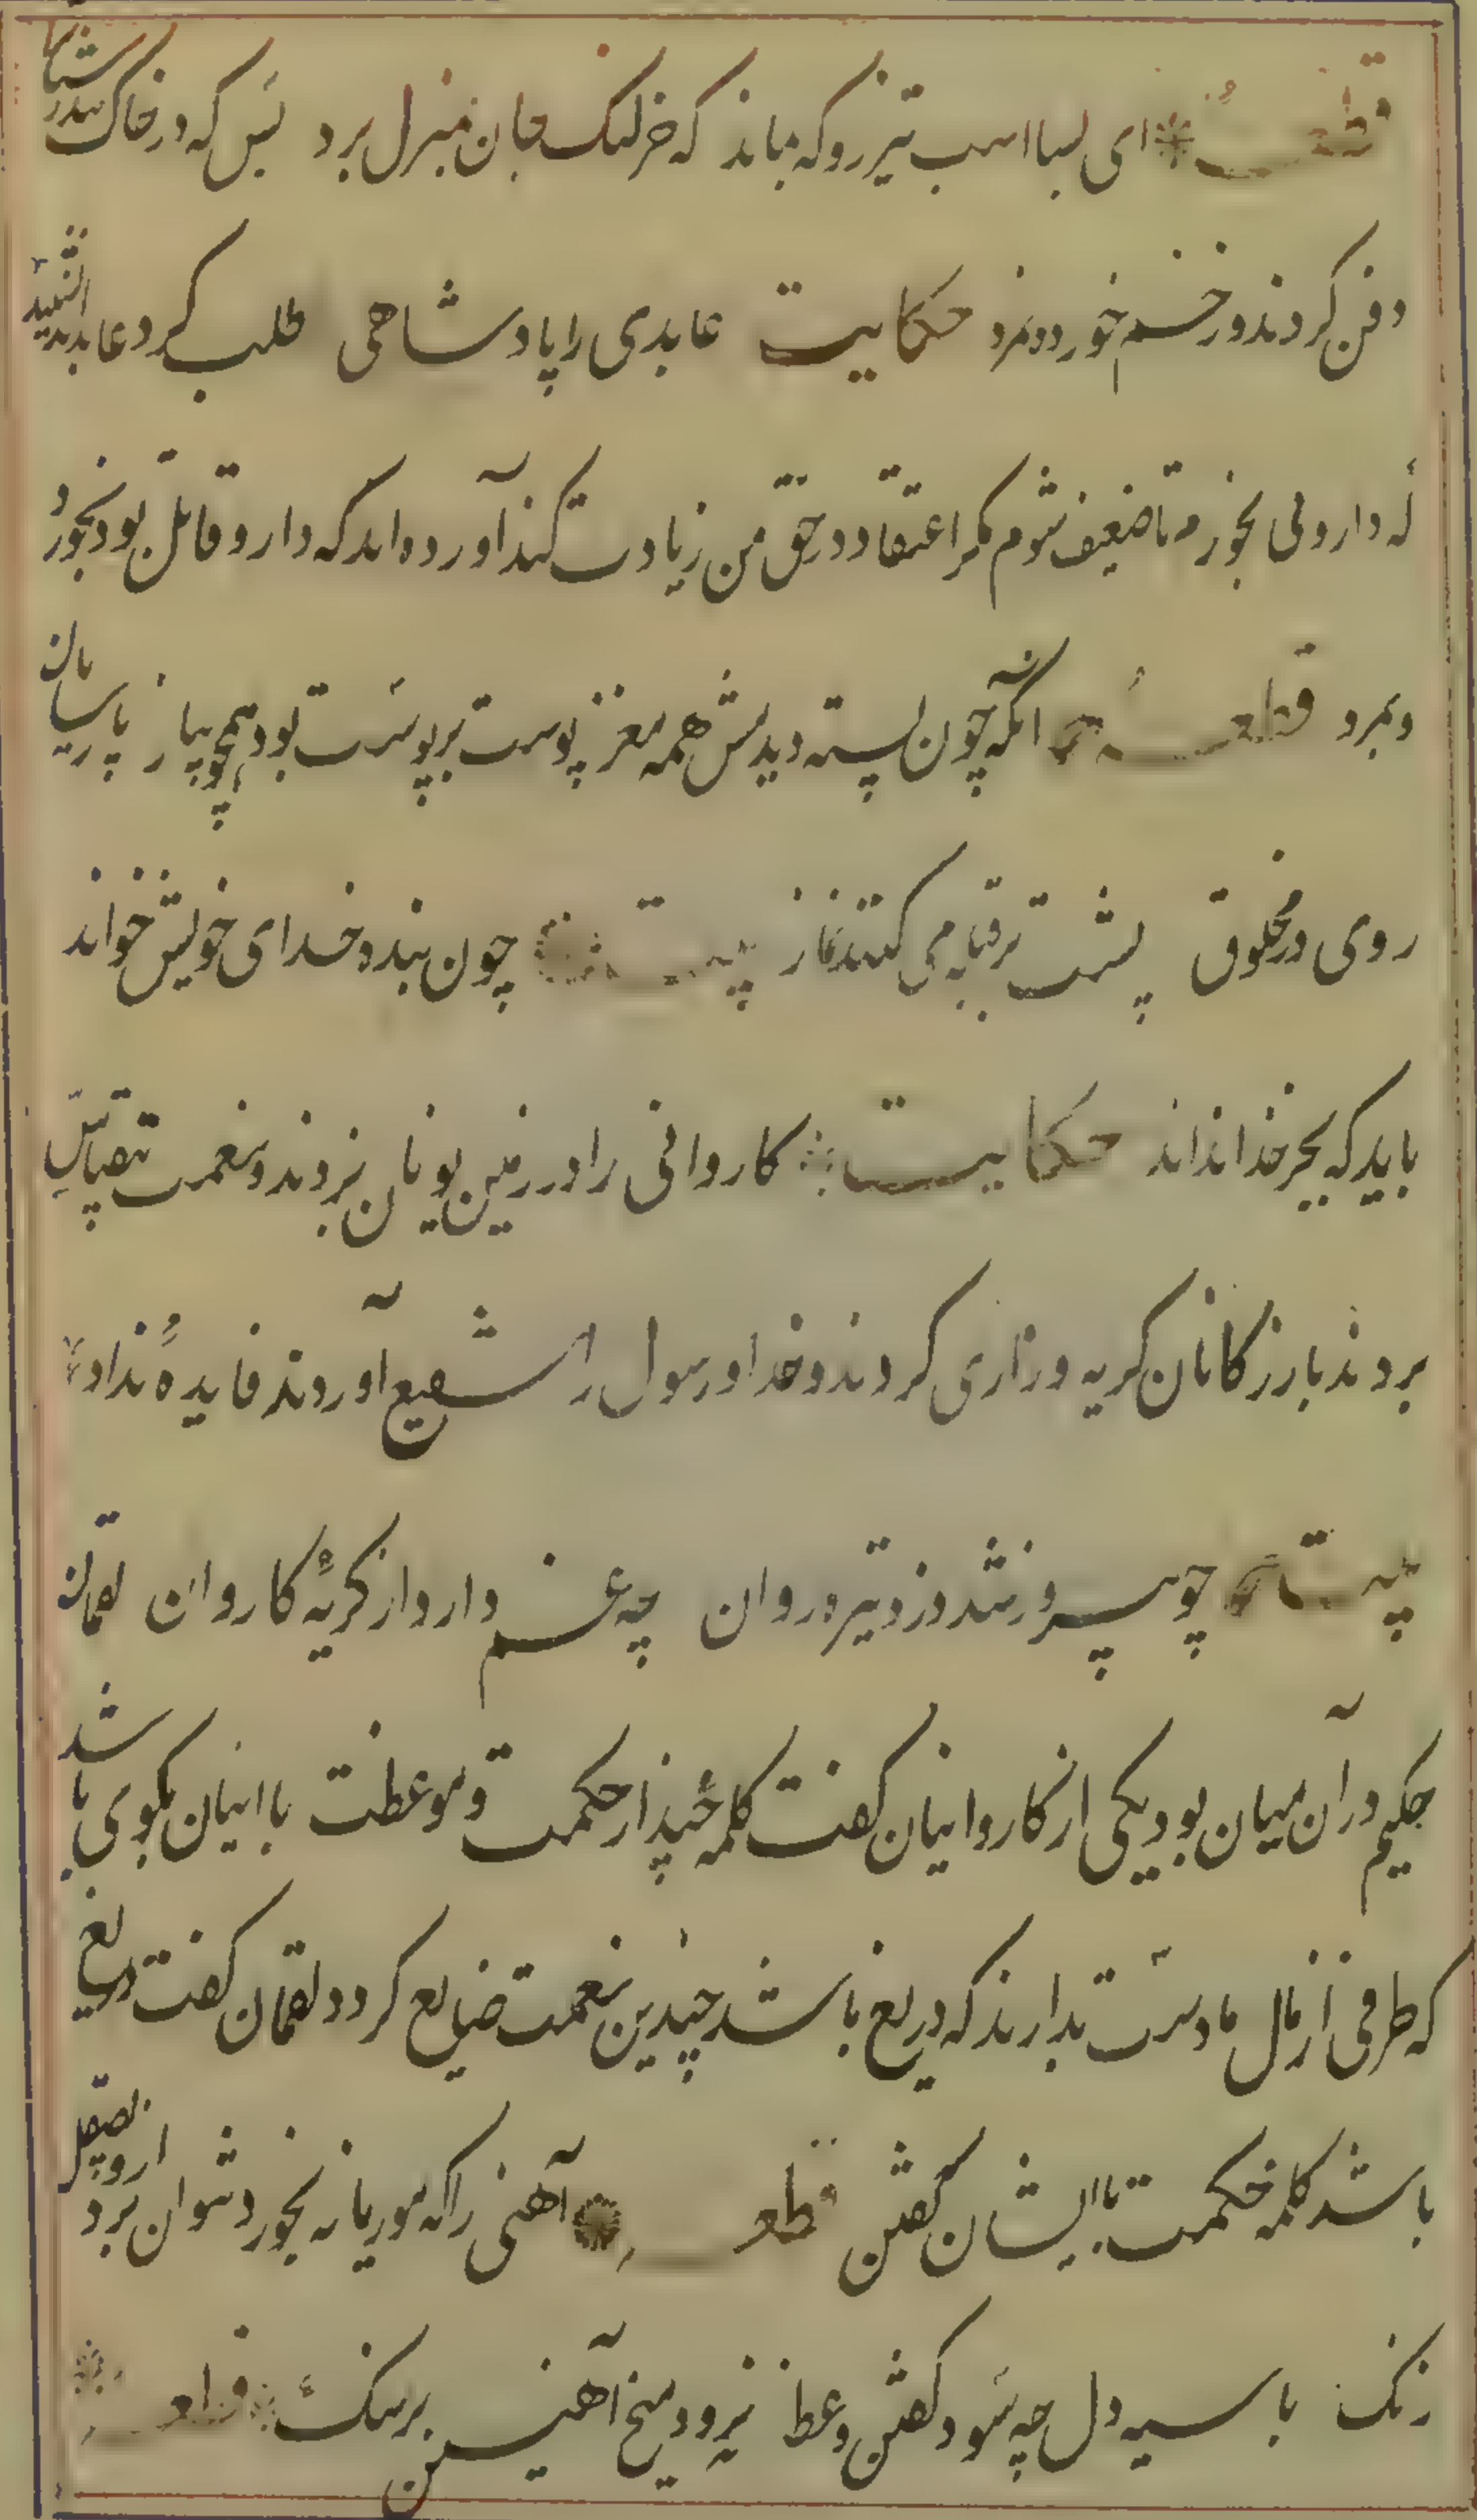 قطعه ای بسا اسب تیزرو که بماند که خر لنک جان بمنزل برد بس که در خاک تندرستانرا
دفن کردند و زخم خورده نمرد حکایت عابدی را پادشاهی طلب کرد عابد اندیشید
که داروئی بخورم تا ضعیف شوم مکر اعتقاد در حق من زیادت کند آورده اند که دارو قاتل بود بخورد
و بمرد قطعه انکه چون پسته دیدمش همه مغز پوست بر پوست بود همچو پیاز پارسایان
روی در مخلوق پشت بر قبله می کنند نماز بیت چون بنده خدای خویش خواند
باید که بجز خدا نداند حکایت کاروانی را در زمین یونان بزدند و نعمت بیقیاس
بردند بازرکانان کریه و زاری کردند و خدا و رسول را شفیع آوردند فایدهٔ نداد
بیت چو پیروز شد دزد تیره روان چه غم دارد از کریهٔ کاروان لقمان
حکیم در آن میان بود یکی از کاروانیان کفت کلمهٔ چند از حکمت و موعظت با اینان بکوی باشد
که طرفی از مال ما دست بدارند که دریغ باشد چندین نعمت ضایع کردد لقمان کفت دریغ
باشد کلمه حکمت با ایشان کفتن قطعه آهنی را که موریانه بخورد نتوان برد ازو بصیقل
زنک با سیه دل چه سود کفتن وعظ نرود میخ آهنین بر سنک قطعه